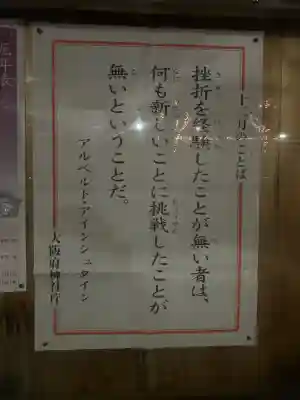 十一月のことば
挫折を経験したことが無い者は、
何も新しいことに挑戦したことが
無いということだ。
アルベルト・アインシュタイン
大阪府神社庁
厄年表